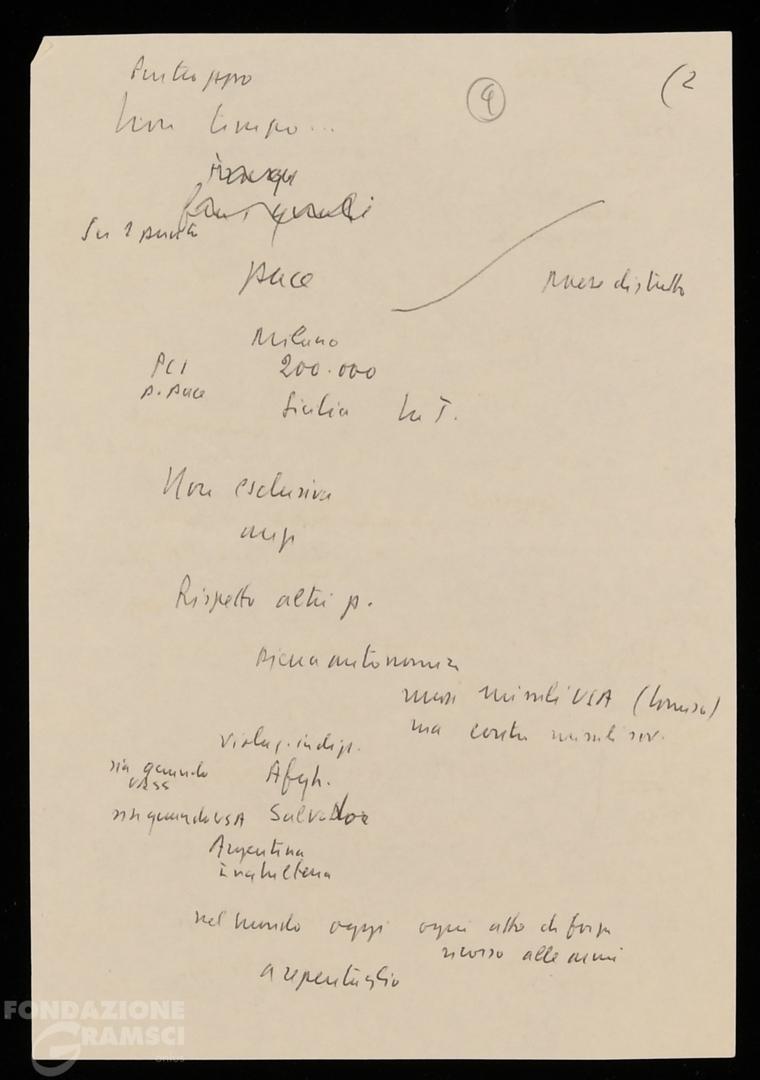 (2
4
Purtroppo
Non tempo...
Su 2 punti
pace
Milano
PCI 200.000
p. pace
Sicilia La T.
Non esclusiva
Rispetto altri p.
piena autonomia
missili USA (Comiso)
ma contro missili sov.
violaz. indip.
sia quando URSS Afgh.
sia quando USA Salvador
Argentina
Inghilterra
nel mondo oggi ogni atto di forza
ricorso alle armi
a repentaglio
FONDAZIONE
GRAMSCI
onlus